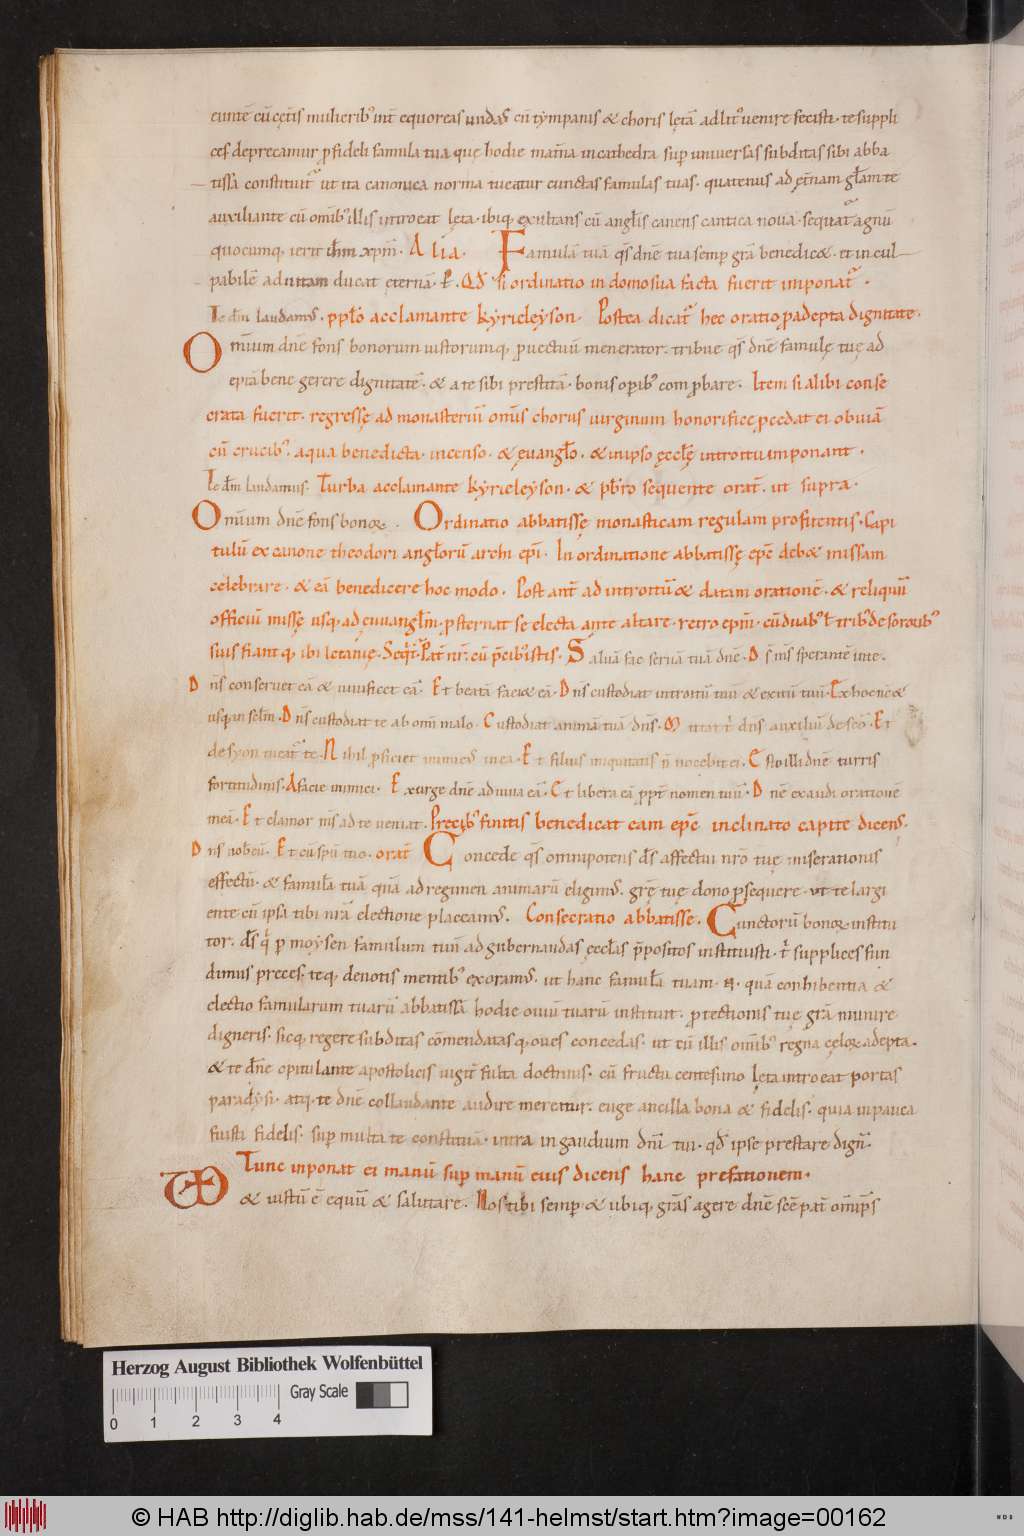 euntē cū cęt̄is mulierib; int̄ equoreas undas cū tympanis & choris lętā ad lit; uenire fecisti. te suppli
ces deprecamur p fideli famula tua que hodie mat̄na in cathedra sup uniuersas subditas sibi abba
tissa constituit̄ ut ita canonica norma tueatur cunctas famulas tuas. quatenus ad ęt̄nam gl̄am te
auxiliante cū om̄ib; illis introeat lęta. ibiq; exultans cū angl̄is canens cantica noua. sequat̄ agnū
quocumq; ierit ih̄m xp̄m. Alia. Famulā tuā qs̄ dn̄e tua semp gr̄a benedic&. et incul
pabilē ad uitam ducat ęternā. P. Qd̄ si ordinatio in domo sua facta fuerit imponat̄.
Te dm̄ laudam;. pplō acclamante Kyrieleyson. Postea dicat̄ hec oratio p adepta dignitate.
Omīum dn̄e fons bonorum iustorumq; puectuū munerator. tribue qs̄ dn̄e famulę tuę ad
eptā bene gerere dignitatē. & a te sibi prestitā. bonis opib; com pbare. Item si alibi conse
crata fuerit. regresse ad monasteriū om̄is chorus uirginum honorifice pcedat ei obuiā
cū crucib;. aqua benedicta. incenso. & ęuangl̄o. & in ipso ęccl̄ę introitu imponant.
Te dm̄ laudamus. Turba acclamante Kyrieleyson. & pb̄ro sequente orat̄. ut supra.
Omīum dn̄e fons bonoꝝ. Ordinatio abbatissę monasticam regulam profitentis. Capi
tulū ex canone theodori angl̄orū archi epī. In ordinatione abbatissę epc̄ deb& missam
celebrare. & eā benedicere hoc modo. Post ant̄ ad introitū & datam orationē. & reliquū
officiū missę usq; ad euuangl̄m. psternat se electa ante altare. retro epm̄. cū duab; ł trib; de sororib;
suis fiant q; ibi letanię. Seqt̄. Pat̄ nr̄. cū pcib; istis. Saluā fac seruā tuā dn̄e. Ds̄ ms̄ sperantē in te.
Dn̄s conseruet eā & uiuificet eā. Et beatā faciat eā. Dn̄s custodiat introitū tuū & exitū tuū. Ex hoc nc̄ &
usq; in sc̄lm. Dn̄s custodiat te ab omī malo. Custodiat animā tuā dn̄s. Mittat t̄ dn̄s auxiliū de sc̄o. Et
de syon tueat̄ te. Nihil pficiet inimic; in ea. Et filius iniquitatis n̄ nocebit ei. Esto illi dn̄e turris
fortitudinis. A facie inimici. Exurge dn̄e adiuua eā. Et libera eā ppt̄ nomen tuū. Dn̄e exaudi orationē
meā. Et clamor ms̄ ad te ueniat. Precib; finitis benedicat eam epc̄ inclinato capite dicens.
Dn̄s uobcū. Et cū spū tuo. orat̄ Concede qs̄ omnipotens ds̄ affectui nr̄o tuę miserationis
effectū. & famulā tuā quā ad regimen animarū eligim;. grę̄ tuę dono psequere. ut te largi
ente cū ipsa tibi nr̄a electione placeam;. Consecratio abbatisse. Cunctorū bonoꝝ institu
tor. ds̄ q̄ p moysen famulum tuū ad gubernandas ęccl̄as ppositos instituisti. t̄ supplices fun
dimus preces. teq; deuotis mentib; exoram;. ut hanc famulā tuam. N. quā conhibentia &
electio famularum tuarū abbatissā hodie ouiū tuarū instituit. protectionis tuę grā munire
digneris. sicq; regere subditas cōmendatas q; oues concedas. ut cū illis om̄ib; regna cęloꝝ adepta.
& te dn̄e opitulante apostolicis iugit̄ fulta doctrinis. cū fructu centesimo lęta introeat portas
paradysi. atq; te dn̄e collaudante audire mereatur. euge ancilla bona & fidelis. quia in pauca
fuisti fidelis. sup multa te constituā. intra in gaudium dn̄i tui. qd̄ ipse prestare dign̄.
Tunc inponat ei manū sup manū eius dicens hanc prefationem.
VD & iustū ē equū & salutare. Nos tibi semp & ubiq; grās agere dn̄e sc̄e pat̄ om̄ps̄
Herzog August Bibliothek Wolfenbüttel
Gray Scale
0 1 2 3 4
© HAB http://diglib.hab.de/mss/141-helmst/start.htm?image=00162